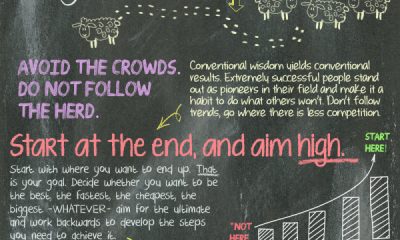 AVOID THE CROWDS.
DO NOT FOLLOW
THE HERD.
Conventional wisdom yields conventional
results. Extremely successful people stand
out as pioneers in their field and make it a
habit to do what others won't. Don't follow
trends, go where there is less competition.
Start at the end, and aim high.
Start with where you want to end up. That
is your goal. Decide whether you want to be
the best, the fastest, the cheapest, the
biggest -WHATEVER- aim for the ultimate
and work backwards to develop the steps
you need to achieve it.
START
HERE!
*NOT
HERE